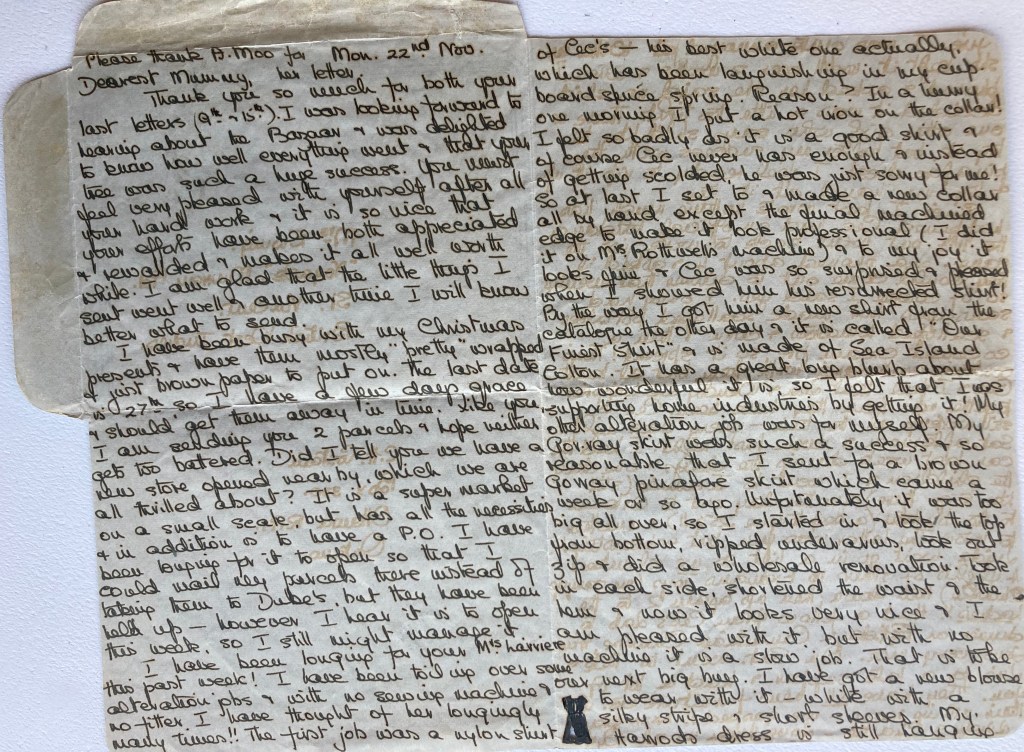 Please thank B. Moo for Mon. 22nd Nov.
her letter
Dearest Mummy,
Thank you so much for both your
last letters (9th & 15th). I was looking forward to
hearing about the Bazaar & was delighted
to know how well everything went & that your
tree was such a huge success. You must
feel very pleased with yourself after all
your hard work & it is so nice that
your efforts have been both appreciated
& rewarded & makes it all well worth
while. I am glad that the little things I
sent went well & another time I will know
better what to send.
I have been busy with my Christmas
presents & have them mostly "pretty" wrapped
& just brown paper to put on. The last date
is 27th so I have a few days grace
& should get them away in time. Like you,
I am sending you 2 parcels & hope neither
gets too battered. Did I tell you we have a
new store opened nearby, which we are
all thrilled about? It is a super market
on a small scale, but has all the necessities
& in addition is to have a P.O. I have
been longing for it to open so that I
could mail my parcels there instead of
taking them to Dube's, but they have been
held up — however I hear it is to open
this week, so I still might manage it.
I have been longing for your Mrs Larriere
this past week! I have been toiling over some
alteration jobs & with no sewing machine &
no fitter I have thought of her longingly
many times!! The first job was a nylon shirt
of Cec's — his best white one actually,
which has been languishing in my cup-
board since spring. Reason? In a hurry
one morning I put a hot iron on the collar!
I felt so badly as it is a good shirt &
of course Cec never has enough & instead
of getting scolded, he was just sorry for me!
So at last I set to & made a new collar
all by hand except the final machined
edge to make it look professional (I did
it on Mrs Rothwell's machine) & to my joy it
looks fine & Cec was so surprised & pleased
when I showed him his resurrected shirt!
By the way I got him a new shirt from the
catalogue the other day & it is called "Our
Finest Shirt" & is made of Sea Island
Cotton. It has a great long blurb about
how wonderful it is so I felt that I was
supporting home industries by getting it! My
other alteration job was for myself. My
Gor-ray skirt was such a success & so
reasonable that I sent for a brown
Gorray pinafore skirt which came a
week or so ago. Unfortunately it was too
big all over, so I started in & took the top
from bottom, ripped underarms, took out
zip & did a wholesale renovation. Took
in each side, shortened the waist & the
hem & now it looks very nice & I
am pleased with it but with no
machine it is a slow job. That is to be
our next big buy. I have got a new blouse
to wear with it — white with a
silky stripe & short sleeves. My
Harrods dress is still hanging